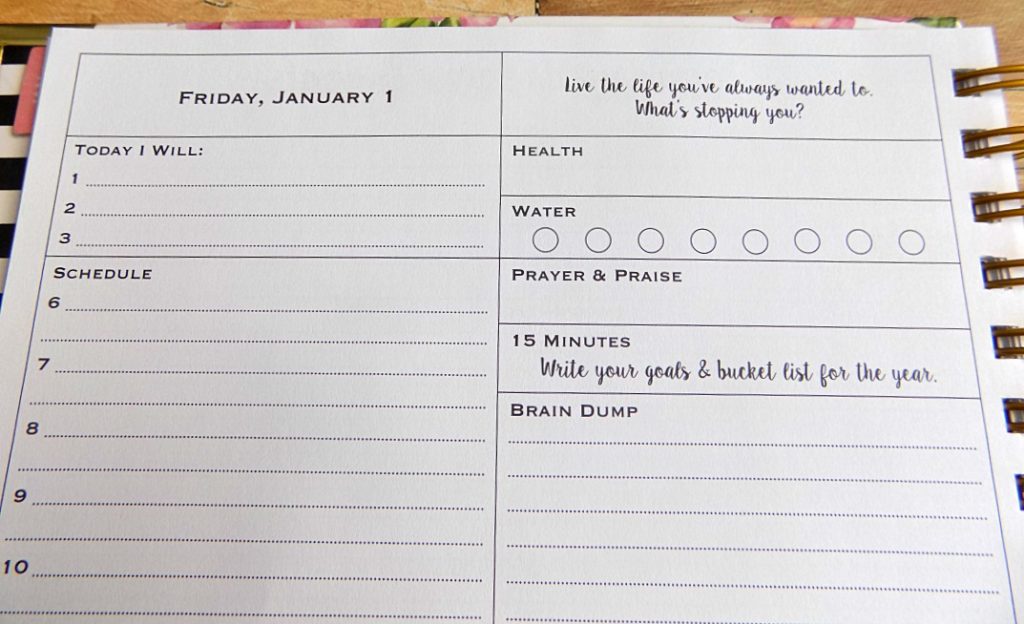 FRIDAY, JANUARY 1
Live the life you've always wanted to.
What's stopping you?
TODAY I WILL:
1
2
3
SCHEDULE
6
7
8
9
10
HEALTH
WATER
PRAYER & PRAISE
15 MINUTES
Write your goals & bucket list for the year.
BRAIN DUMP